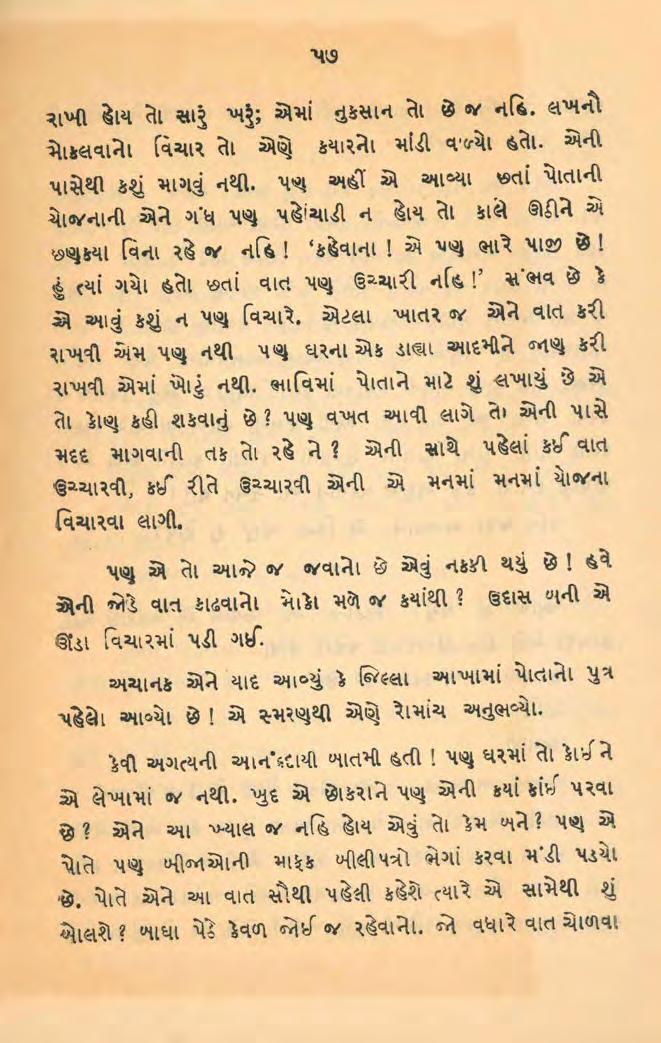 ૫૭
રાખી હોય તો સારું ખરું; એમાં નુકસાન તો છે જ નહિ. લખનૌ
મોકલવાનો વિચાર તો એણે કયારનો માંડી વાળ્યો હતો. એની
પાસેથી કશું માગવું નથી. પણ અહીં એ આવ્યા છતાં પોતાની
યોજનાની એને ગંધ પણ પહોંચાડી ન હોય તો કાલે ઊઠીને એ
છણકયા વિના રહે જ નહિ ! ‘કહેવાના ! એ પણ ભારે પાજી છે !
હું ત્યાં ગયો હતો છતાં વાત પણ ઉચ્ચારી નહિ !’ સંભવ છે કે
એ આવું કશું ન પણ વિચારે. એટલા ખાતર જ એને વાત કરી
રાખવી એમ પણ નથી પણ ઘરના એક ડાહ્યા આદમીને જાણ કરી
રાખવી એમાં ખોટું નથી. ભાવિમાં પોતાને માટે શું લખાયું છે એ
તો કોણ કહી શકવાનું છે ? પણ વખત આવી લાગે તો એની પાસે
મદદ માગવાની તક તો રહે ને ? એની સાથે પહેલાં કઈ વાત
ઉચ્ચારવી, કઈ રીતે ઉચ્ચારવી એની એ મનમાં મનમાં યોજના
વિચારવા લાગી.
પણ એ તો આજે જ જવાનો છે એવું નકકી થયું છે ! હવે
એની જોડે વાત કાઢવાનો મોકો મળે જ કયાંથી ? ઉદાસ બની એ
ઊંડા વિચારમાં પડી ગઈ.
અચાનક એને યાદ આવ્યું કે જિલ્લા આખામાં પોતાનો પુત્ર
પહેલો આવ્યો છે ! એ સ્મરણથી એણે રોમાંચ અનુભવ્યો.
કેવી અગત્યની આનંદદાયી બાતમી હતી ! પણ ઘરમાં તો કોઈને
એ લેખામાં જ નથી. ખુદ એ છોકરાને પણ એની કયાં કાંઈ પરવા
છે ? એને આ ખ્યાલ જ નહિ હોય એવું તો કેમ બને ? પણ એ
પોતે પણ બીજાઓની માફક બીલીપત્રો ભેગાં કરવા મંડી પડયો
છે. પોતે એને આ વાત સૌથી પહેલી કહેશે ત્યારે એ સામેથી શું
બોલશે ? બાઘા પેઠે કેવળ જોઈ જ રહેવાનો. જો વધારે વાત ચોળવા